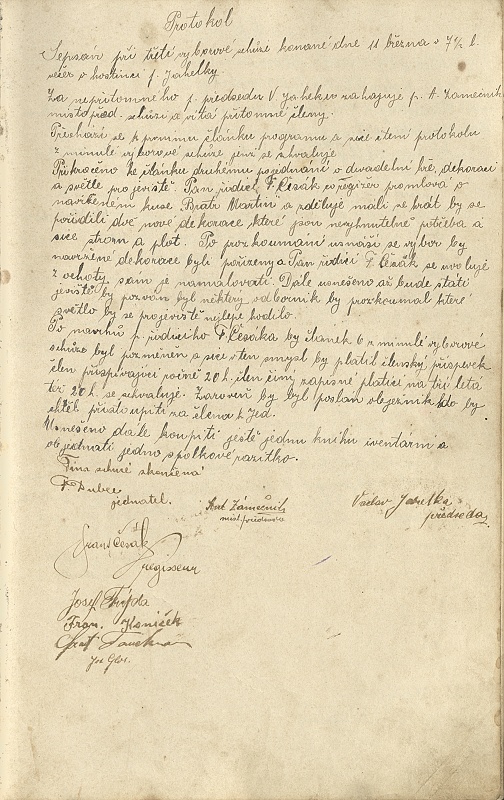 Protokol
Sepsán při třetí výborové schůzi konané dne 11 března v 7½ h.
večer v hostinci p. Jahelky.
Za nepřítomného p. předsedu V. Jahelku zahajuje p. A. Zámečník
místopřed. schůzi a vítá přítomné členy.
Přechází se k prvnímu článku programu a sice čtení protokolu
z minulé výborové schůze, jenž se schvaluje.
Přikročeno ke článku druhému pojednání o divadelní hře, dekoraci
a světle pro jeviště. Pan ředicí F. Česák co režizer promlouva o
navrženém kuse Bratr Martin a sděluje máli se hrát by se
pořídili dvě nové dekorace, které jsou nevyhnutelně potřeba a
sice strom a plot. Po prozkoumání usnáší se výbor by
navržené dekorace byli pořízeny a Pan ředicí F. Česák se uvoluje
z ochoty sám je namalovati. Dále usneseno až bude státi
jeviště by pozván byl některý odborník by prozkoumal které
světlo by se projeviště nejlépe hodilo.
Po navrhu p. ředicího F. Česáka by článek 6 z minulé výborové
schůze byl pozměněn a sice v ten smysl by platil členský příspěvek
člen přispívající ročně 20 h. člen činý zápisné platící na tří leta
též 20 h. se schvaluje. Zároveň by byl poslán obyezník kdo by
chtěl přistoupiti za člena k Jed.
Usnešeno dále koupiti ještě jednu knihu inventární a
objednati jedno spolkové razítko.
Tím schuze skončená
F. Dubec
jednatel.
Ant Zámečník
míst.předseda
Václav Jahelka
předseda.
Frant Česák
regisseur
Josef Frýda
Fran. Koníček